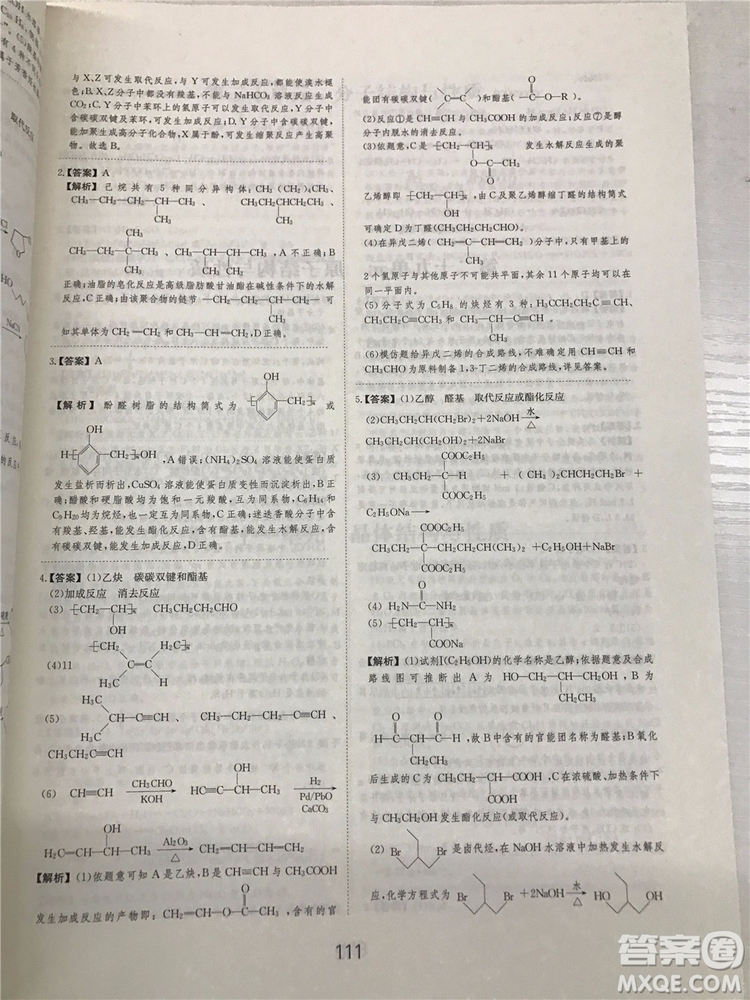 与 X、Z 可发生取代反应，与 Y 可发生加成反应，都能使溴水褪
色；B、X、Y 分子中都没有羧基，不能与 NaHCO₃ 溶液反应生成
CO₂；C、Y 分子中苯环上的氢原子可以发生取代反应，Y 分子中
含碳碳双键及苯环，可发生加成反应；D、Y 分子中含碳碳双键，
能加聚生成高分子化合物，X 属于酚，可发生缩聚反应生成高分
子化合物。故选 B。
2.【答案】A
【解析】己烷共有 5 种同分异构体：CH₃(CH₂)₄CH₃、
CH₃—CH₂—CH₂—CH—CH₃、 CH₃CH₂CHCH₂CH₃、
CH₃ CH₃
CH₃
CH₃—CH₂—C—CH₃、CH₃—CH—CH—CH₃，A 不正确；B
CH₃ CH₃ CH₃
正确；油脂的皂化反应是高级脂肪酸甘油酯在碱性条件下的水解
反应，C 正确；由该聚合物的链节
知其单体为 CH₂═CH₂ 和 CH₃—CH═CH₂，D 正确。
3.【答案】A
【解析】酚醛树脂的结构简式为 或
OH
H OH，A 错误；(NH₄)₂SO₄ 溶液能使蛋白质
发生盐析而析出，CuSO₄ 溶液能使蛋白质变性而沉淀析出，B 正
确；醋酸和硬脂酸均为饱和一元羧酸，互为同系物，C₆H₁₄ 和
C₉H₂₀ 均为烷烃，也一定互为同系物，C 正确；迷迭香酸分子中含
有羧基、羟基，能发生酯化反应，含有酯基，能发生水解反应，含
有碳碳双键，能发生加成反应，D 正确。
4.【答案】(1)乙炔 碳碳双键和酯基
(2)加成反应 消去反应
(3) CH₂—CH CH₃CH₂CH₂CHO
OH
(4)11 CH₂ H₂C
C═C
H₃C H
(5) CH₃ CH—C≡CH 、 CH₃—CH₂—CH₂—C≡CH、
CH₃
CH₃CH₂C≡CCH₃
(6) CH≡CH CH₃CHO KOH HC≡C—CH—CH₃ OH H₂ Pd/PbO CaCO₃
H₂C═CH—CH—CH₃ OH Al₂O₃ △ CH₂═CH—CH═CH₂
【解析】(1)依题意可知 A 是乙炔，B 是 CH≡CH 与 CH₃COOH
发生加成反应的产物即：CH₂═CH—O—C—CH₃，含有的官
能团有碳碳双键( C═C )和酯基( —C—O—R )。
(2)反应①是 CH≡CH 与 CH₃COOH 的加成反应；反应⑦是分
子内脱水的消去反应。
(3)依题意，C 是 CH₂—CH 发生水解反应生成的聚
O—C—CH₃
O
乙烯醇即 CH₂—CH ，由 C 和聚乙烯醇缩丁醛的结构简式
OH
可确定 D 为丁醛(CH₃CH₂CH₂CHO)。
(4)在异戊二烯( CH₂═C—CH═CH₂ )分子中，只有甲基上的
CH₃
2 个氢原子与其他原子不可能共平面，其余 11 个原子均可以在
同一平面内。
(5)分子式为 C₅H₈ 的炔烃有 3 种：
(6)模仿题给异戊二烯的合成路线，不难确定用 CH≡CH 和
CH₃CHO 为原料制备 1,3-丁二烯的合成路线，详见答案。
5.【答案】(1)乙醇 醛基 取代反应或酯化反应
(2)CH₃CH₂CH(CH₂Br)₂＋2NaOH 水 △
CH₃CH₂CH(CH₂OH)₂＋2NaBr
COOC₂H₅
(3) CH₃CH₂—C—H ＋ (CH₃)₂CHCH₂CH₂Br＋
COOC₂H₅
C₂H₅ONa
COOC₂H₅
CH₃CH₂—C—CH₂CH₂CH(CH₃)₂＋C₂H₅OH＋NaBr
COOC₂H₅
O
(4) H₂N—C—NH₂
(5) CH₂—CH
COONa
【解析】(1)试剂Ⅰ(C₂H₅OH)的化学名称是乙醇；依据题意及合成
路线图可推断出 A 为 HO—CH₂—CH—CH₂OH，B 为
CH₂CH₃
O O
H—C—CH—C—H，故 B 中含有的官能团名称为醛基；B 氧化
CH₂CH₃
后生成的 C 为 CH₃CH₂—CH—COOH，C 在浓硫酸、加热条件下
COOH
与 CH₃CH₂OH 发生酯化反应(或取代反应)。
(2) Br Br 是卤代烃，在 NaOH 水溶液中发生水解反
应，化学方程式为 Br Br ＋2NaOH 水 △ HO OH
111
答案圈
MXQE.COM